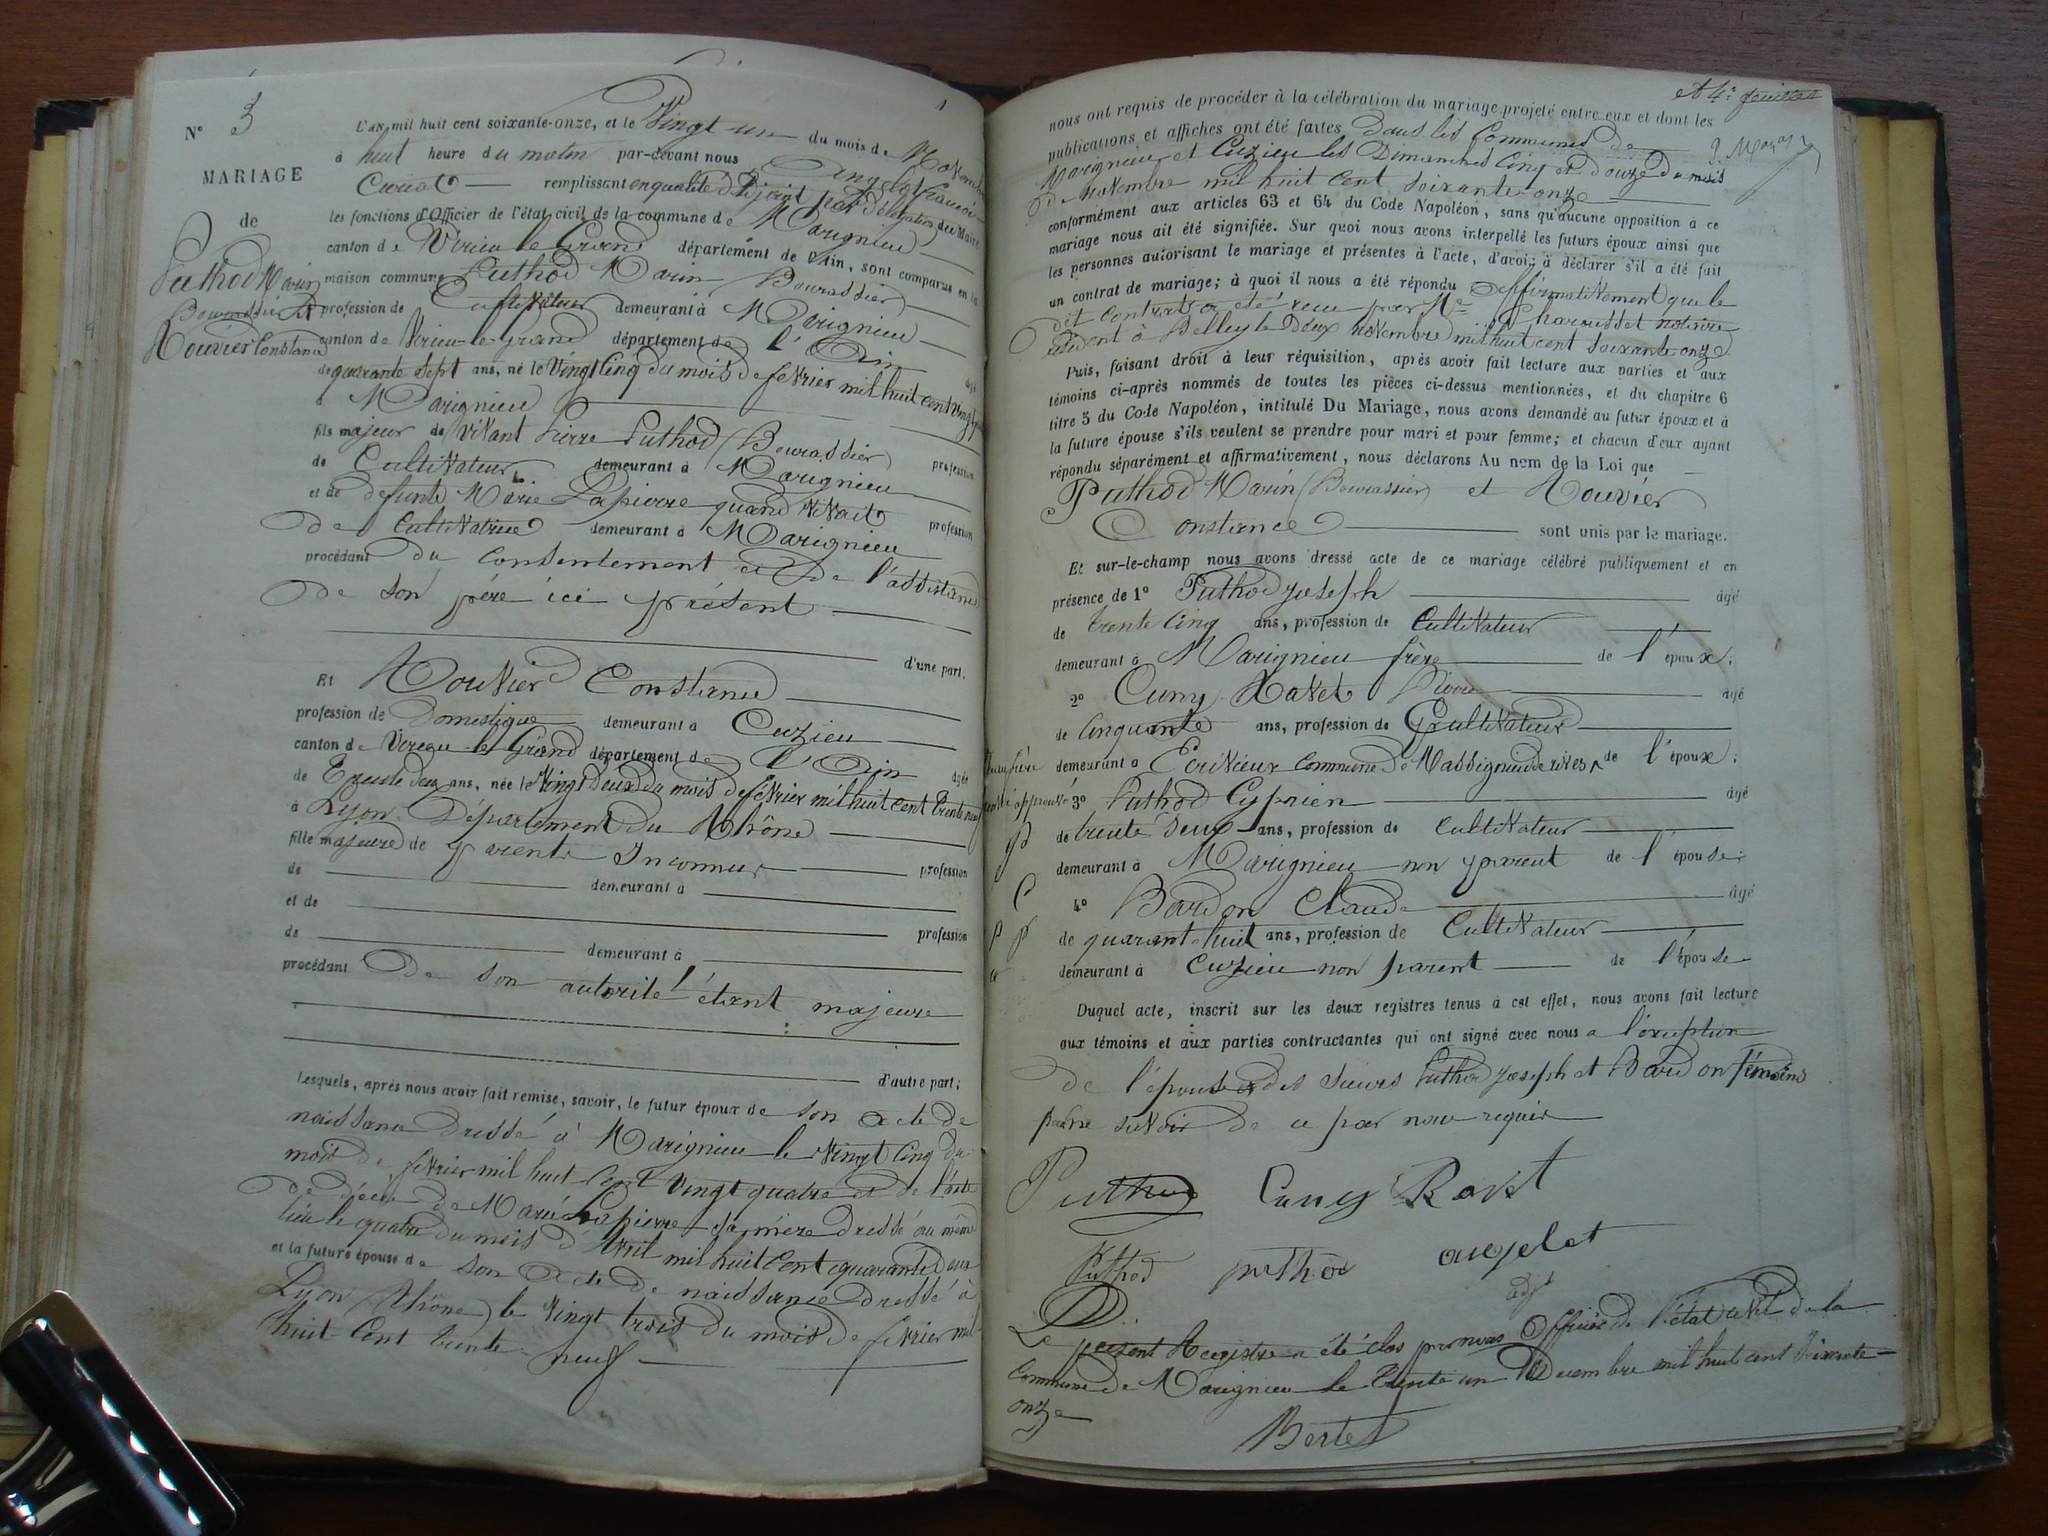 N° 3
MARIAGE
de
Puthod Marin
Bourassier et
Rouvier Constance
L'an mil huit cent soixante-onze, et le Vingt un du mois de Novembre
à huit heure du matin par-devant nous Angelot François
remplissant en qualité d'Adjoint par délégation du Maire
les fonctions d'Officier de l'état civil de la commune de Marignieu
canton de Virieu le Grand département de l'Ain, sont comparus en la
maison commune Puthod Marin (Bourassier)
profession de Cultivateur demeurant à Marignieu
canton de Virieu-le-Grand département de l'Ain âgé
de quarante sept ans, né le Vingt Cinq du mois de février mil huit cent vingt quatre
à Marignieu
fils majeur de vivant Pierre Puthod (Bourassier) profession
de Cultivateur demeurant à Marignieu
et de defunte Marie Lapierre quand vivait profession
de Cultivatrice demeurant à Marignieu
procédant du consentement et de l'assistance
de son père ici présent
d'une part.
Et Rouvier Constance
profession de Domestique demeurant à Cuzieu
canton de Virieu-le-Grand département de l'Ain âgée
de Trente deux ans, née le Vingt Deux du mois de février mil huit cent trente neuf
à Lyon Département du Rhône
fille majeure de parents Inconnus profession
de demeurant à
et de profession
de demeurant à
procédant de son autorité étant majeure
d'autre part;
Lesquels, après nous avoir fait remise, savoir, le futur époux de son acte de
naissance dressé à Marignieu le Vingt Cinq du
mois de février mil huit cent vingt quatre et de l'acte
de décès de Marie Lapierre sa mère dressé au même
lieu le quatre du mois d'Avril mil huit cent quarante deux
et la future épouse de son Acte de naissance dressé à
Lyon (Rhône) le vingt trois du mois de février mil
huit cent trente-neuf
et 4e feuillet
nous ont requis de procéder à la célébration du mariage projeté entre eux et dont les
publications et affiches ont été faites dans les Communes de
Marignieu et Cuzieu les Dimanches Cinq et douze du mois
de Novembre mil huit cent soixante-onze
conformément aux articles 63 et 64 du Code Napoléon, sans qu'aucune opposition à ce
mariage nous ait été signifiée. Sur quoi nous avons interpellé les futurs époux ainsi que
les personnes autorisant le mariage et présentes à l'acte, d'avoir à déclarer s'il a été fait
un contrat de mariage; à quoi il nous a été répondu affirmativement que le
dit contrat a été reçu par Me Charousset notaire
résident à Belley le Deux novembre mil huit cent soixante onze
Puis, faisant droit à leur réquisition, après avoir fait lecture aux parties et aux
témoins ci-après nommés de toutes les pièces ci-dessus mentionnées, et du chapitre 6
titre 5 du Code Napoléon, intitulé Du Mariage, nous avons demandé au futur époux et à
la future épouse s'ils veulent se prendre pour mari et pour femme; et chacun d'eux ayant
répondu séparément et affirmativement, nous déclarons Au nom de la Loi que
Puthod Marin (Bourassier) et Rouvier
Constance sont unis par le mariage.
Et sur-le-champ nous avons dressé acte de ce mariage célébré publiquement et en
présence de 1° Puthod Joseph âgé
de trente cinq ans, profession de Cultivateur
demeurant à Marignieu frère de l'époux;
2° Cuny Ravet Pierre âgé
de Cinquante ans, profession de Cultivateur
beau frère demeurant à Ecrivieux Commune de Massignieu de rives de l'époux;
approuvé 3° Puthod Cyprien âgé
de trente deux ans, profession de Cultivateur
demeurant à Marignieu non parent de l'épouse
4° Bardon Claude âgé
de quarant-huit ans, profession de Cultivateur
demeurant à Cuzieu non parent de l'épouse
Duquel acte, inscrit sur les deux registres tenus à cet effet, nous avons fait lecture
aux témoins et aux parties contractantes qui ont signé avec nous a l'exception
de l'épouse et des sieurs Puthod Joseph et Bardon témoins
pour ne savoir de ce par nous requis
Puthod Cuny Ravet
Puthod puthod angelot
adjt
Le présent Registre a été clos par nous Officier de l'état civil de la
Commune de Marignieu le trente un Décembre mil huit cent soixante-
onze
Bertet